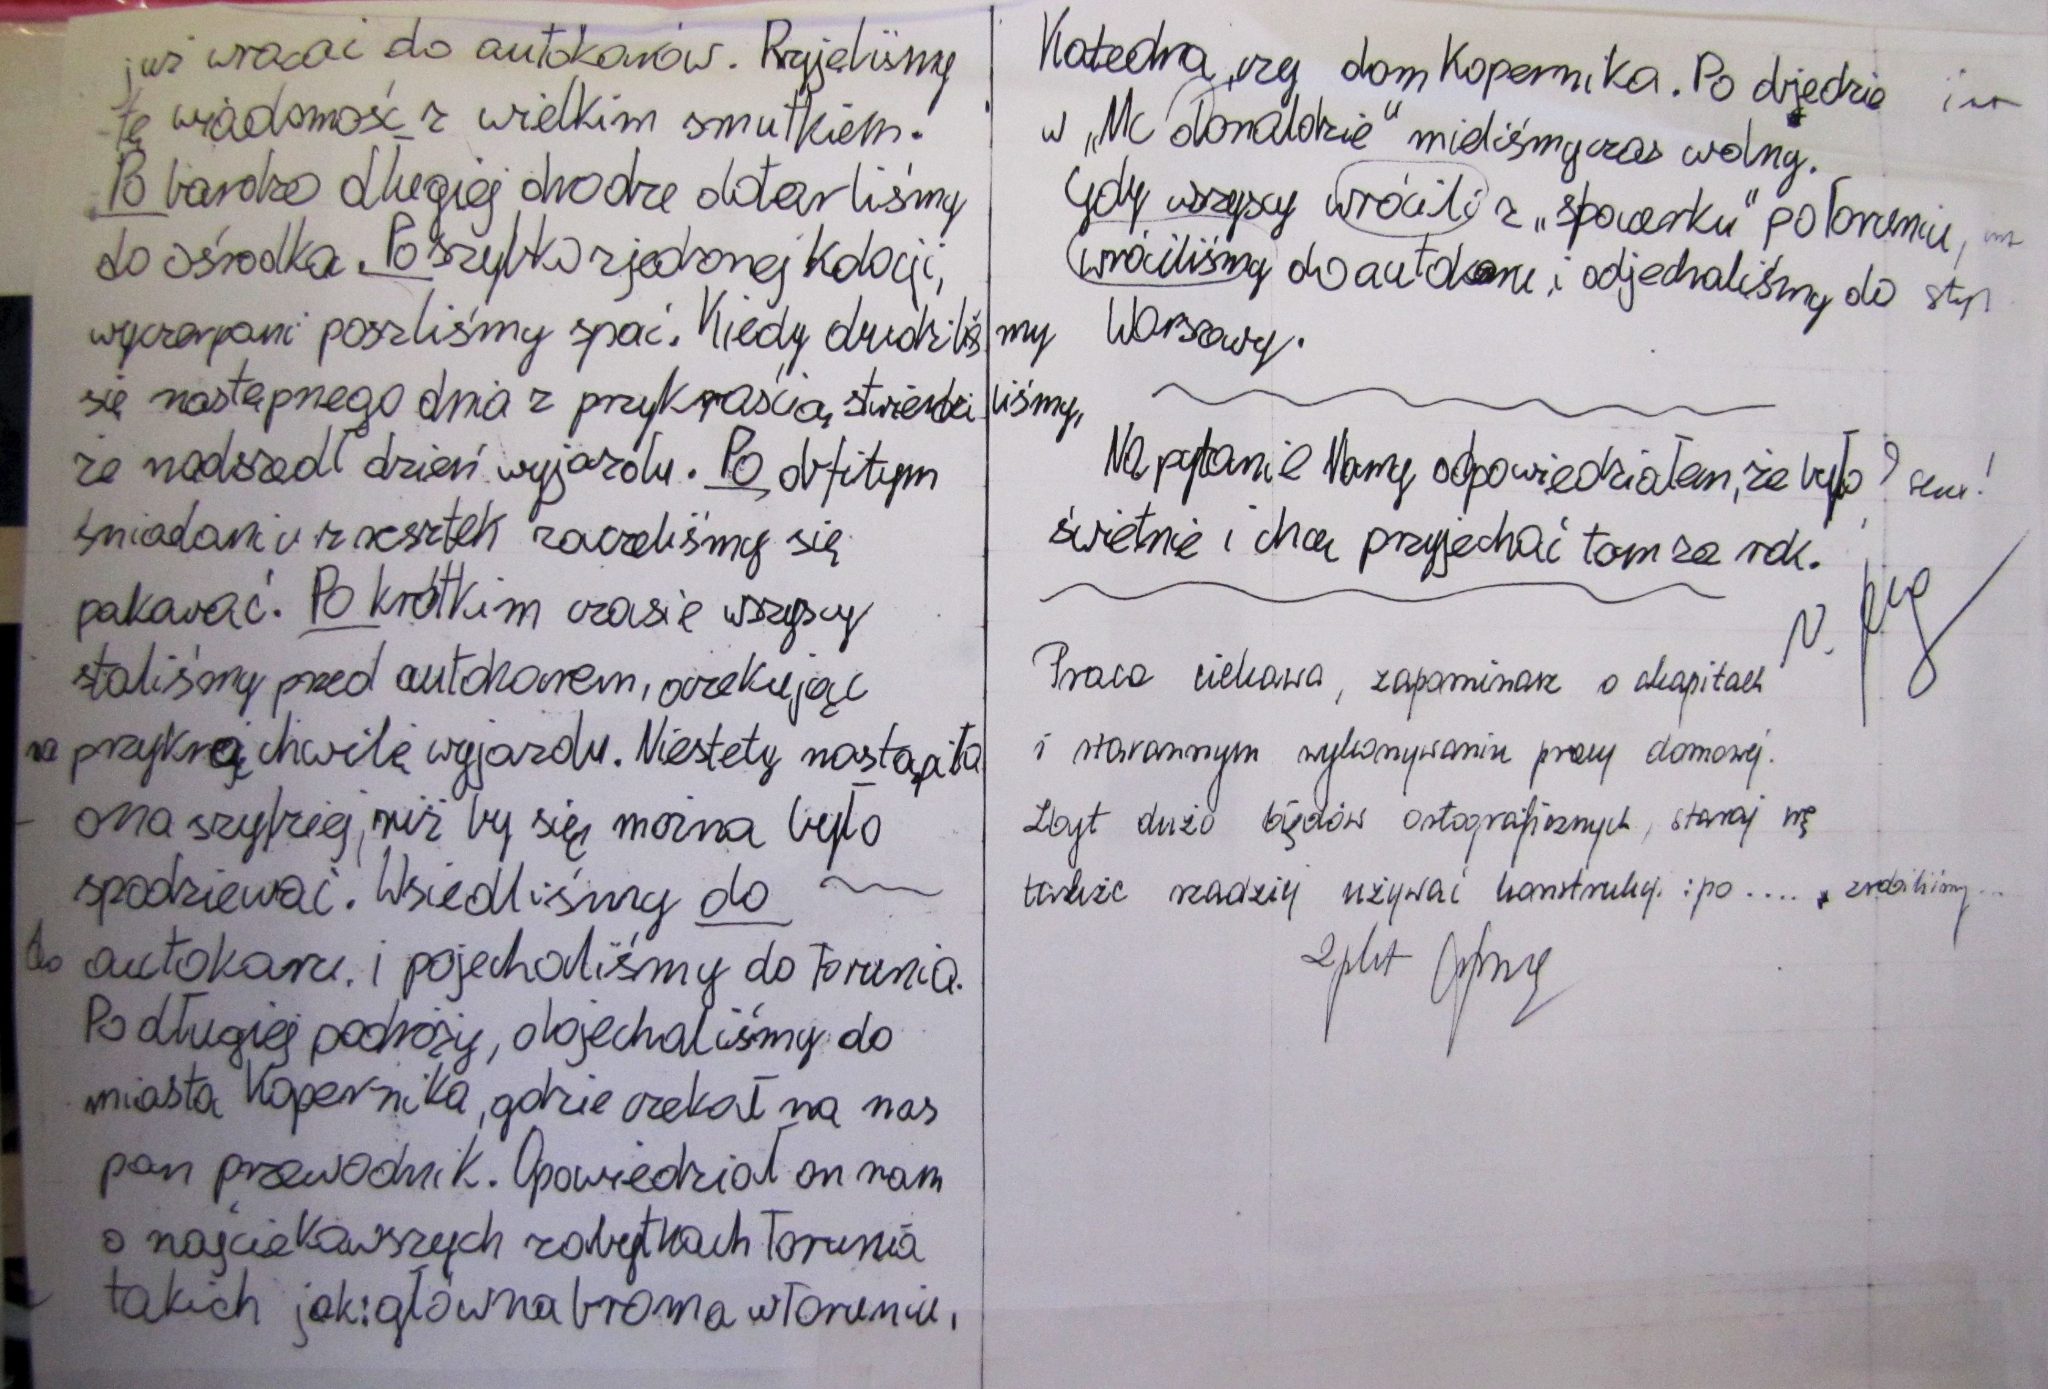 już wracać do autokarów. Przyjeliśmy
tę wiadomość z wielkim smutkiem.
Po bardzo długiej drodze dotarliśmy
do ośrodka. Po szybko zjedzonej kolacji,
wyczerpani poszliśmy spać. Kiedy
się następnego dnia z przykraścią stwierdziliśmy,
że nadszedł dzień wyjazdu. Po obfitym
śniadaniu z resztek zaczeliśmy się
pakawać. Po krótkim czasie wszyscy
staliśmy pzed autokarem, oczekując
na przykrą chwilę wyjazdu. Niestety nastąpiła
ona szybciej, niż by się można było
spodziewać. Wsiedliśmy do
do autokaru. i pojechaliśmy do Torunia.
Po długiej podróży, dojechaliśmy do
miasta Kopernika, gdzie czekał na nas
pan przewodnik. Opowiedział on nam
o najciekawszych zabytkach Torunia
takich jak: główna brama w Toruniu,
Katedra, czy dom Kopernika. Po objedzie
w „Mc donaldzie" mieliśmy czas wolny.
Gdy wszyscy wrócili z „spacerku" po Toruniu,
wróciliśmy do autokaru i odjechaliśmy do styl
Warszawy.
Na pytanie Mamy odpowiedziałem, że było ?
świetnie i chcę przyjechać tam za rok.
Praca ciekawa, zapominasz o akapitach
i starannym wykonywaniu pracy domowej.
Zbyt dużo błędów ortograficznych, staraj się
także rzadziej używać konstrukcji: po .... zrobiliśmy...